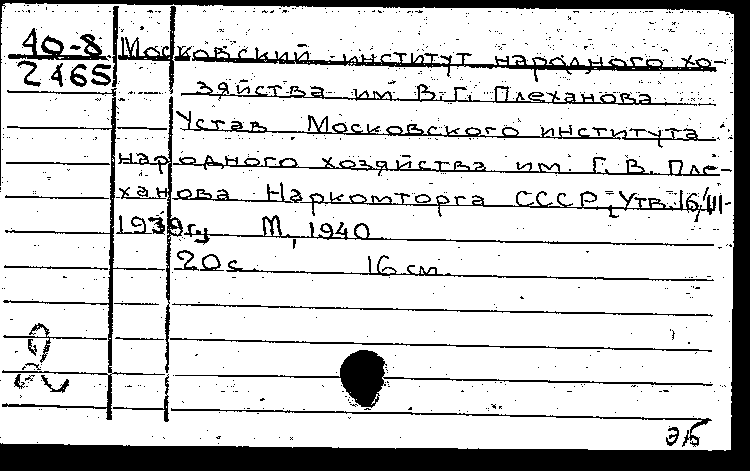 40-8 Московский институт народного хо-
2465 зяйства им В.Г. Плеханова
Устав Московского института
народного хозяйства им. Г. В. Пле-
ханова Наркомторга СССР, [Утв. 16/III-
1939г.] М, 1940
20 с. 16 см.
2
эб